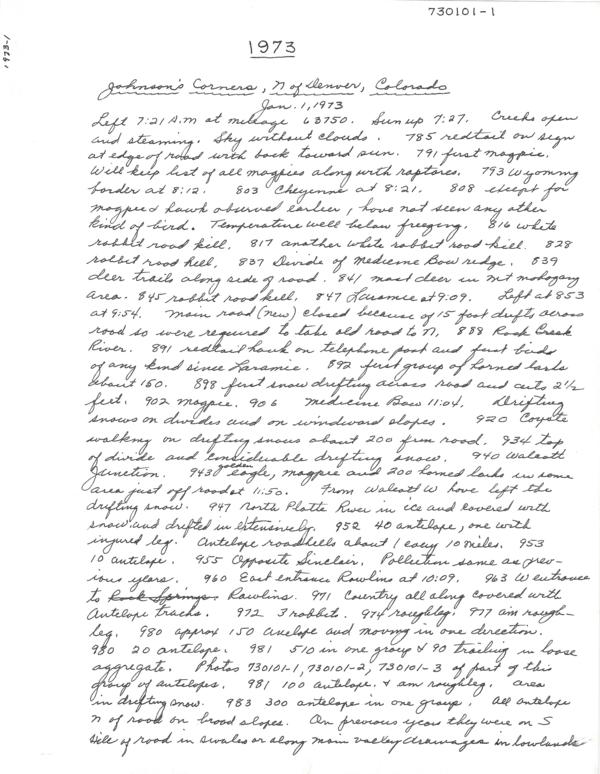 730101-1
1973-1
1973
Johnson's Corners, N of Denver, Colorado
Jan. 1, 1973
Left 7:21 A.M at mileage 63750. Sun up 7:27. Creeks open
and steaming. Sky without clouds. 785 redtail on sign
at edge of road with back toward sun. 791 first magpie.
Will keep list of all magpies along with raptores. 793 Wyoming
border at 8:12. 803 Cheyenne at 8:21. 808 except for
magpie & hawk observed earlier, have not seen any other
kind of bird. Temperature well below freezing. 816 white
rabbit road kill. 817 another white rabbit road kill. 828
rabbit road kill, 837 Divide of Medicine Bow redge. 839
deer trails along side of road. 841 most deer in mt mohogany
area. 845 rabbit road kill. 847 Laramie at 9:09. Left at 853
at 9:54. Main road (new) closed because of 15 foot drifts across
road so were required to take old road to N, 888 Rock Creek
River. 891 redtail hawk on telephone post and first birds
of any kind since Laramie. 892 first group of horned larks
about 150. 898 first snow drifting across road and cuts 2½
feet. 902 magpie. 906 Medicine Bow 11:04. Drifting
snows on divides and on windward slopes. 920 Coyote
walking on drifting snows about 200 from road. 934 top
of divide and considerable drifting snow. 940 Walcott
Junction. 943 golden eagle, magpie and 200 horned larks in same
area just off road at 11:50. From Walcott W have left the
drifting snow. 947 North Platte River in ice and covered with
snow and drifted in extensively. 952 40 antelope, one with
injured leg. Antelope roadkills about 1 every 10 miles. 953
10 antelope. 955 Opposite Sinclair. Pollution same as prev-
ious years. 960 East entrance Rawlins at 10:09. 963 W entrance
to Rock Springs Rawlins. 971 Country all along covered with
Antelope tracks. 972 3 rabbit. 974 roughleg. 977 am rough-
leg. 980 approx 150 and moving in one direction.
980 20 antelope. 981 510 in one group & 90 trailing in loose
aggregate. Photos 730101-1, 730101-2, 730101-3 of part of this
group of antelopes. 981 100 antelope. & am roughleg. area
in drifting snow. 983 300 antelope in one group. All antelope
N of road on broad slopes. On previous years they were on S
side of road in swales or along main valley drawages in lowlands